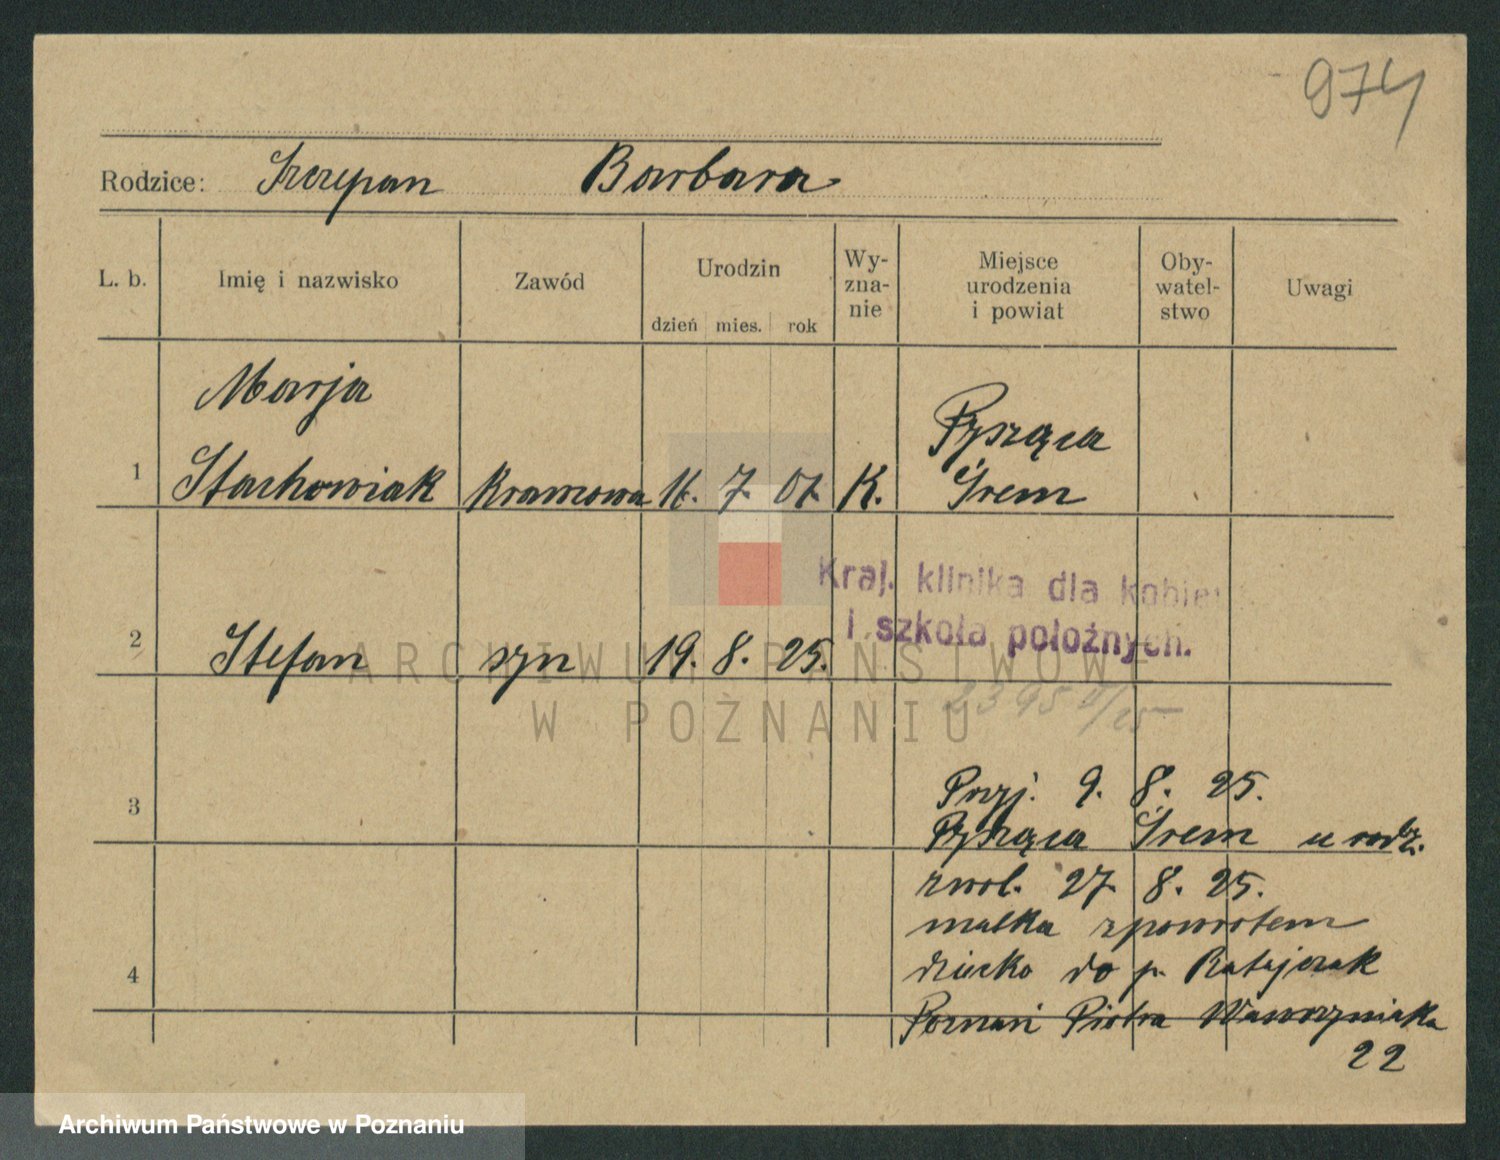 974
Rodzice: Szczepan Barbara
L. b. Imię i nazwisko Zawód Urodzin Wy-zna-nie Miejsce urodzenia i powiat Oby-watel-stwo Uwagi
dzień mies. rok
Marja Pysząca
1 Stachowiak Krawcowa 16. 7. 07. K. Śrem
Kraj. klinika dla kobie
i szkoła położnych.
2 Stefan syn 19. 8. 25.
ARCHIWUM PAŃSTWOWE
W POZNANIU
2395 /25
3 Przyj. 9. 8. 25.
Pysząca Śrem u rodz.
zwol. 27. 8. 25.
matka zpowrotem
4 dziecko do p. Ratajczak
Poznań Piotra Wawrzyniaka
22
Archiwum Państwowe w Poznaniu